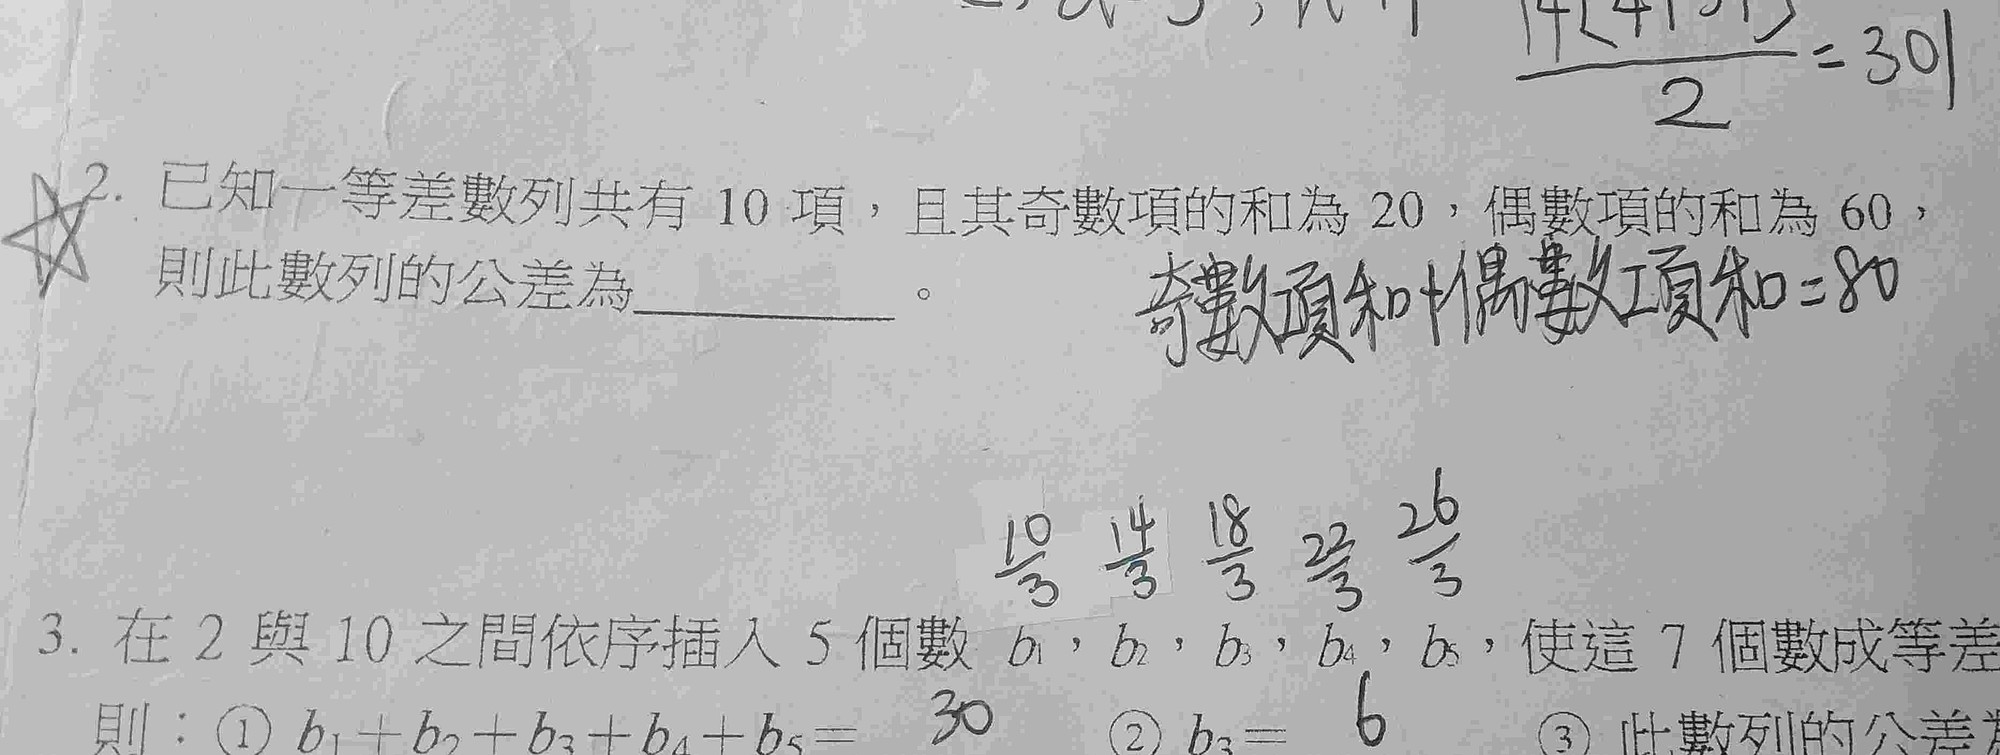 = 301
2
2. 已知一等差數列共有 10 項，且其奇數項的和為 20，偶數項的和為 60，
則此數列的公差為＿＿＿＿＿。
奇數項和+偶數項和=80
10/3 14/3 18/3 22/3 26/3
3. 在 2 與 10 之間依序插入 5 個數 b₁，b₂，b₃，b₄，b₅，使這 7 個數成等差
則：① b₁+b₂+b₃+b₄+b₅= 30 ② b₃= 6 ③ 此數列的公差